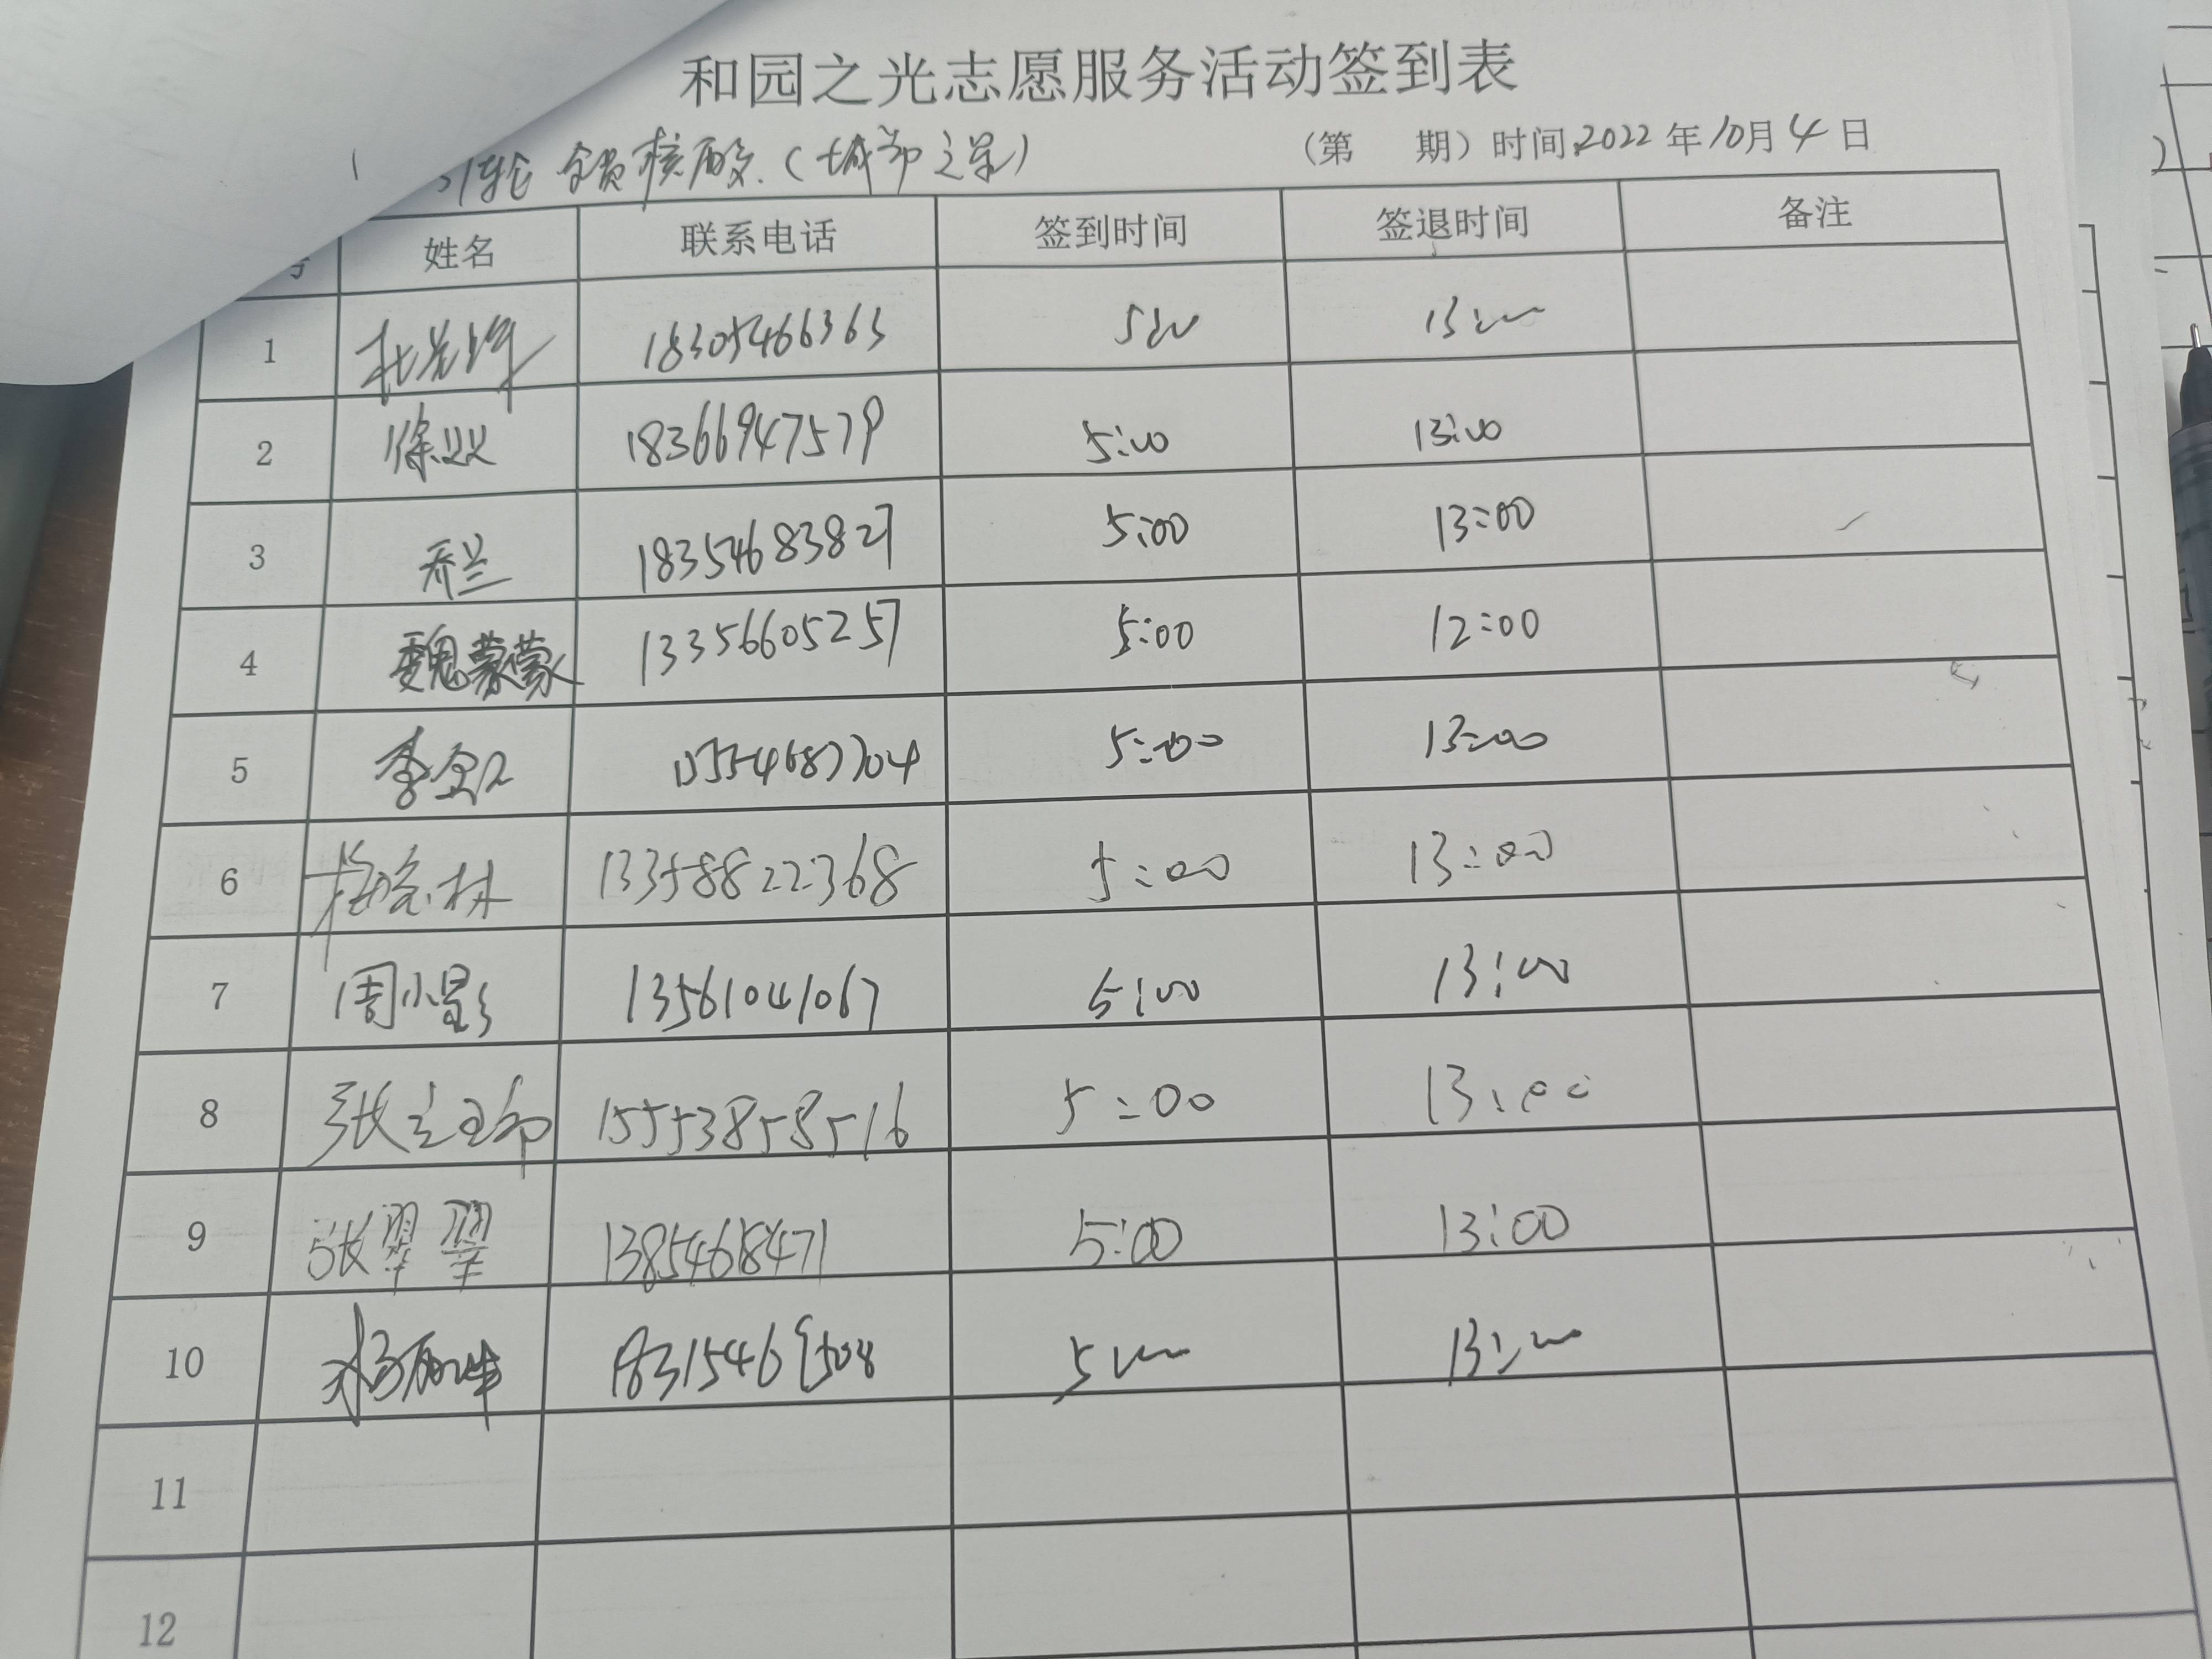 和园之光志愿服务活动签到表
轮 全员核酸(城市之星) (第 期)时间:2022年10月4日
号 姓名 联系电话 签到时间 签退时间 备注
1 18305466363 5:00 13:00
2 徐双 18366947579 5:00 13:00
3 乔兰 18354683827 5:00 13:00
4 魏蒙蒙 13356605257 5:00 12:00
5 5:00 13:00
6 13358822368 5:00 13:00
7 周小影 13561041067 5:00 13:00
8 15553858516 5:00 13:00
9 张翠翠 1385468471 5:00 13:00
10 5:00 13:00
11
12